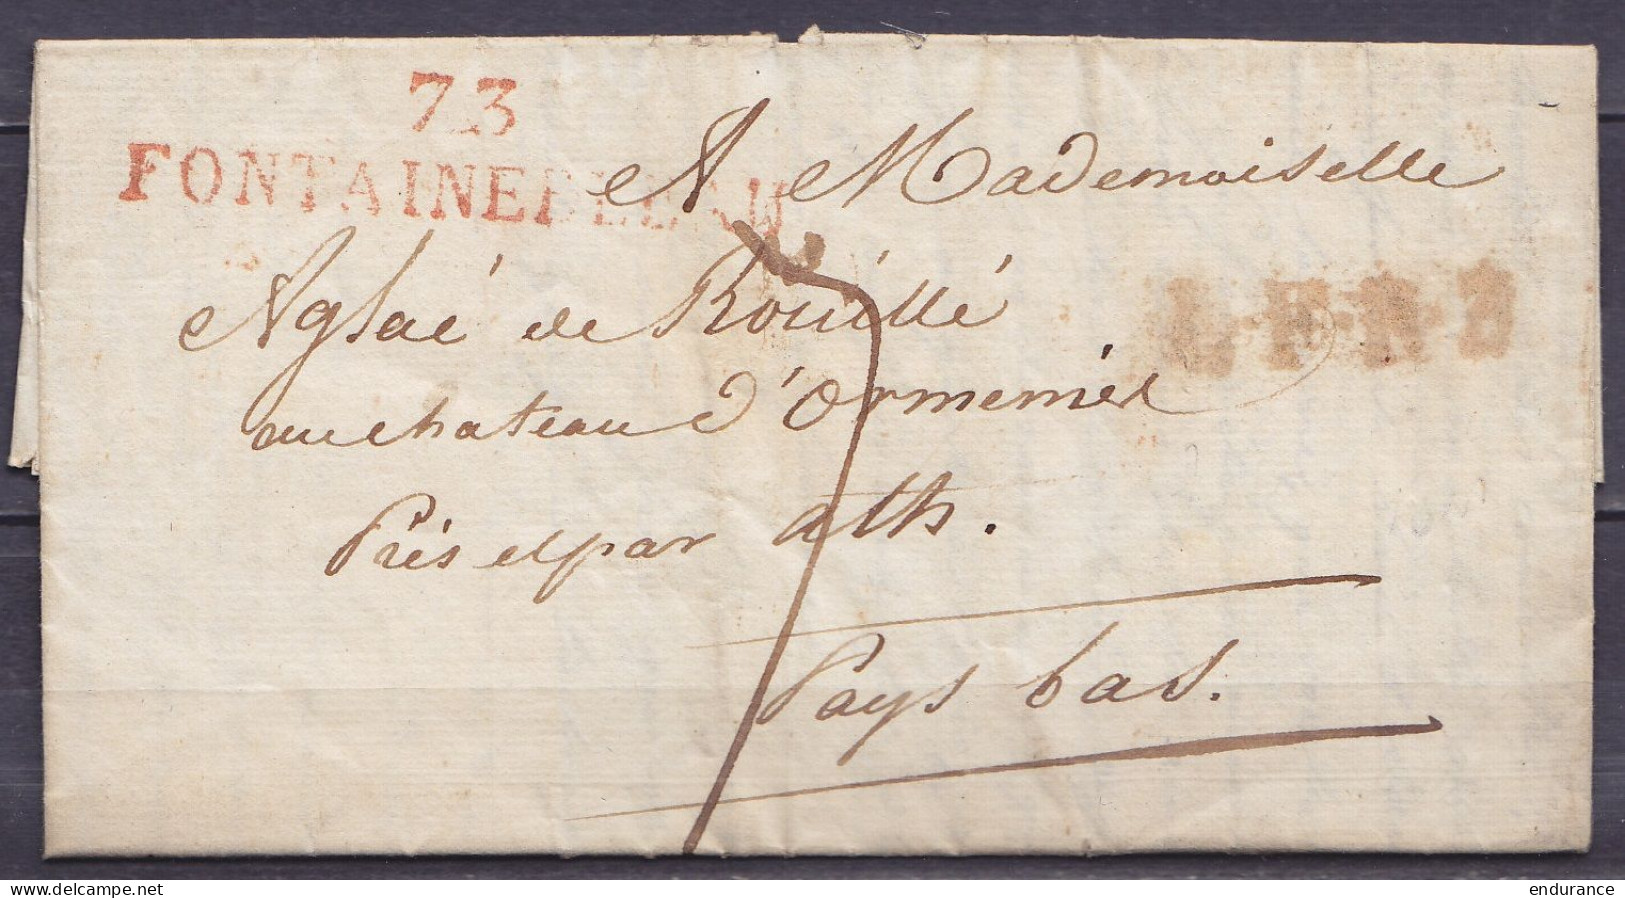 73
FONTAINEBLEAU
A Mademoiselle
Aglaé de Rouillé
au chateau d'Ormemièl
Près et par ath.
Pays bas.
7
delcampe.net
endurance